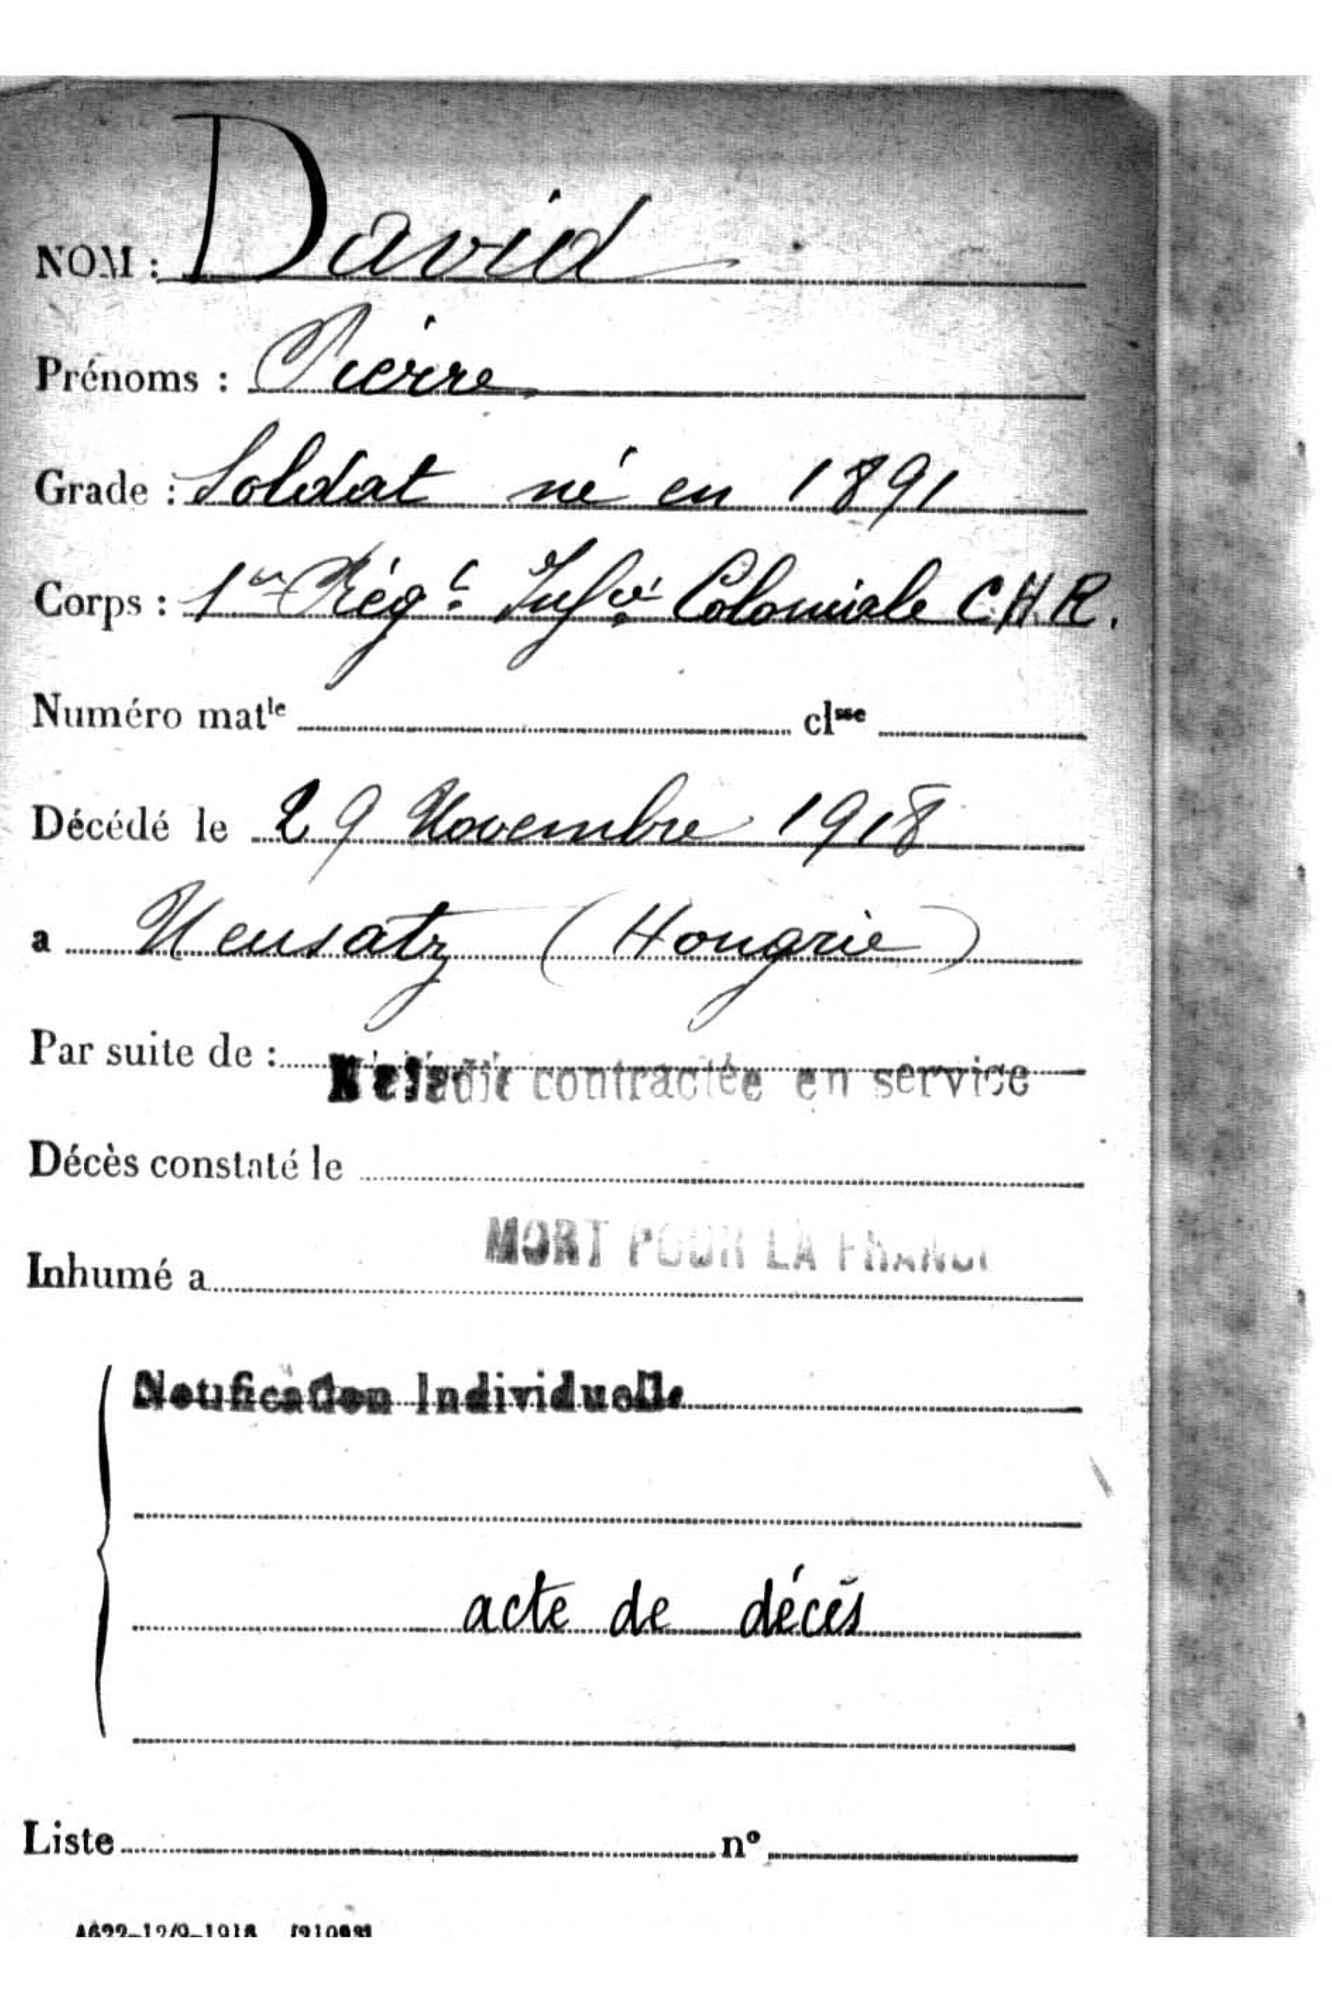 NOM : David
Prénoms : Pierre
Grade : Soldat né en 1891
Corps : 1er Régt Infie Coloniale C.H.R.
Numéro matle clsse
Décédé le 29 Novembre 1918
a Neusatz (Hongrie)
Par suite de :
Maladie contractée en service
Décès constaté le
MORT POUR LA FRANCE
Inhumé a
Notification Individuelle
acte de décès
Liste n°
A622-12/9-1918